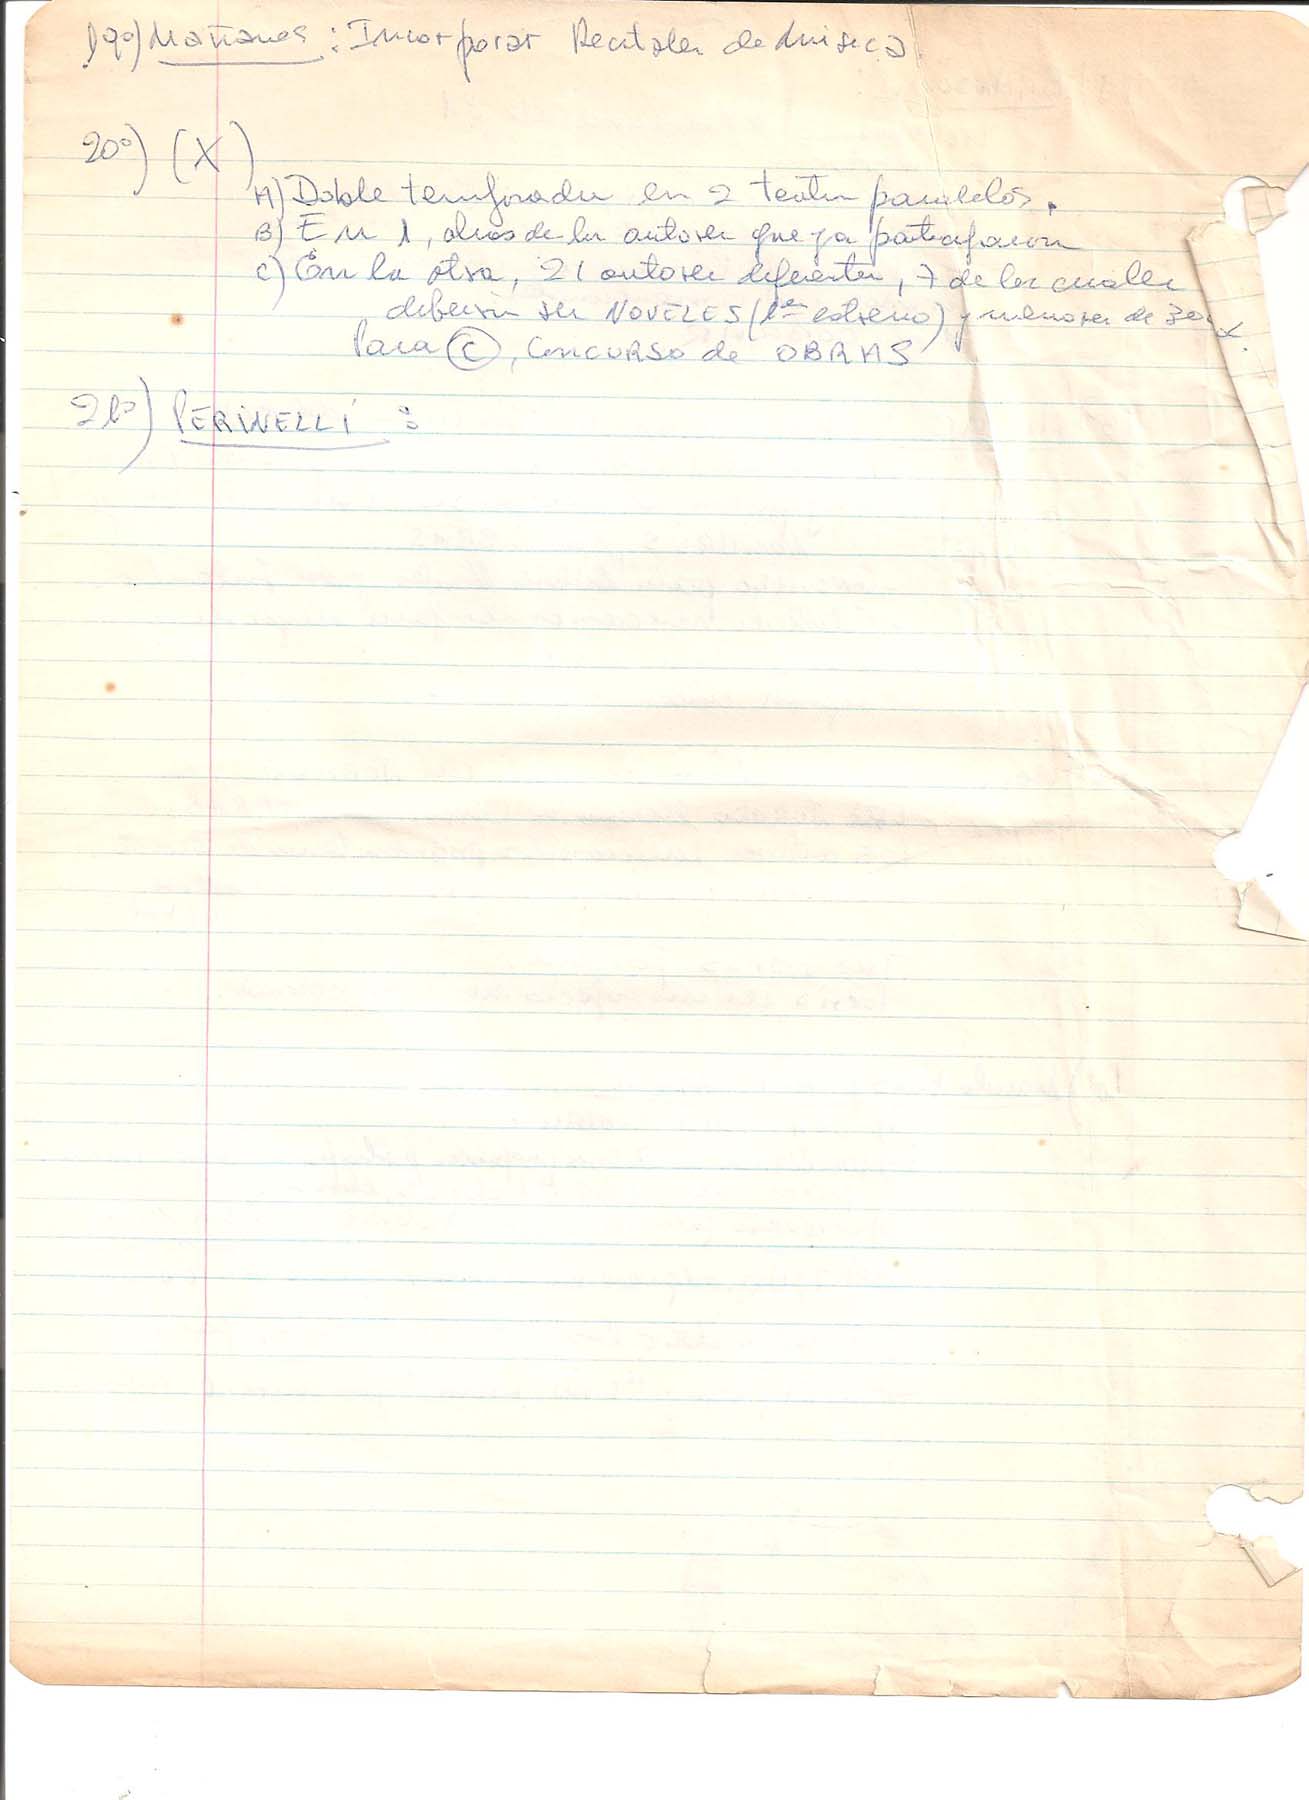 19º) Mañanas : Incorporar Recitales de Música.
20º) (X)
A) Doble temporada en 2 teatros paralelos.
B) En 1, obras de los autores que ya participaron
C) En la otra, 21 autores diferentes, 7 de los cuales
deberían ser NOVELES (1er estreno) y menores de 30
Para (C), CONCURSO de OBRAS
21º) PERINELLI :